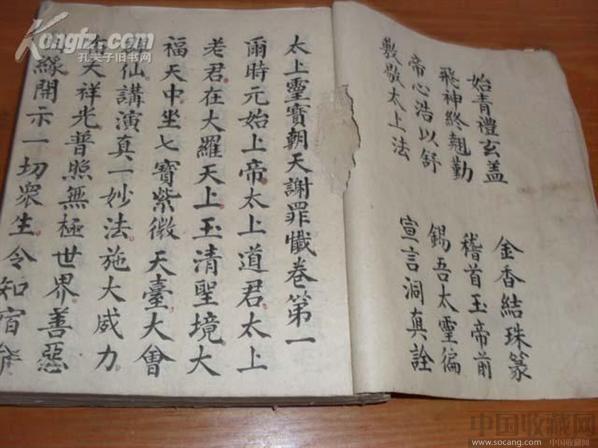 始青禮玄盖
金香結珠篆
飛神終翹勤
稽首玉帝前
帝心浩以舒
錫吾太靈徧
敬太上法
宣言洞真詮
太上靈寶朝天謝罪懺卷第一
爾時元始上帝太上道君太上
老君在大羅天上玉清聖境大
福天中坐七寶紫微天臺大會
仙講演真一妙法施大威力
大祥光普照無極世界善惡
緣開示一切眾生令知宿
Kongfz.com
孔夫子旧书网
中国收藏网
www.socang.com 中国收藏网